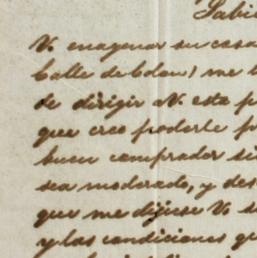 Sabie
V. enagenar su casa
Calle de Colon, me
de dirigir a V. esta p
que creo poderle p
buen comprador si
sea moderado, y des
que me dijese V. s
y las condiciones qu